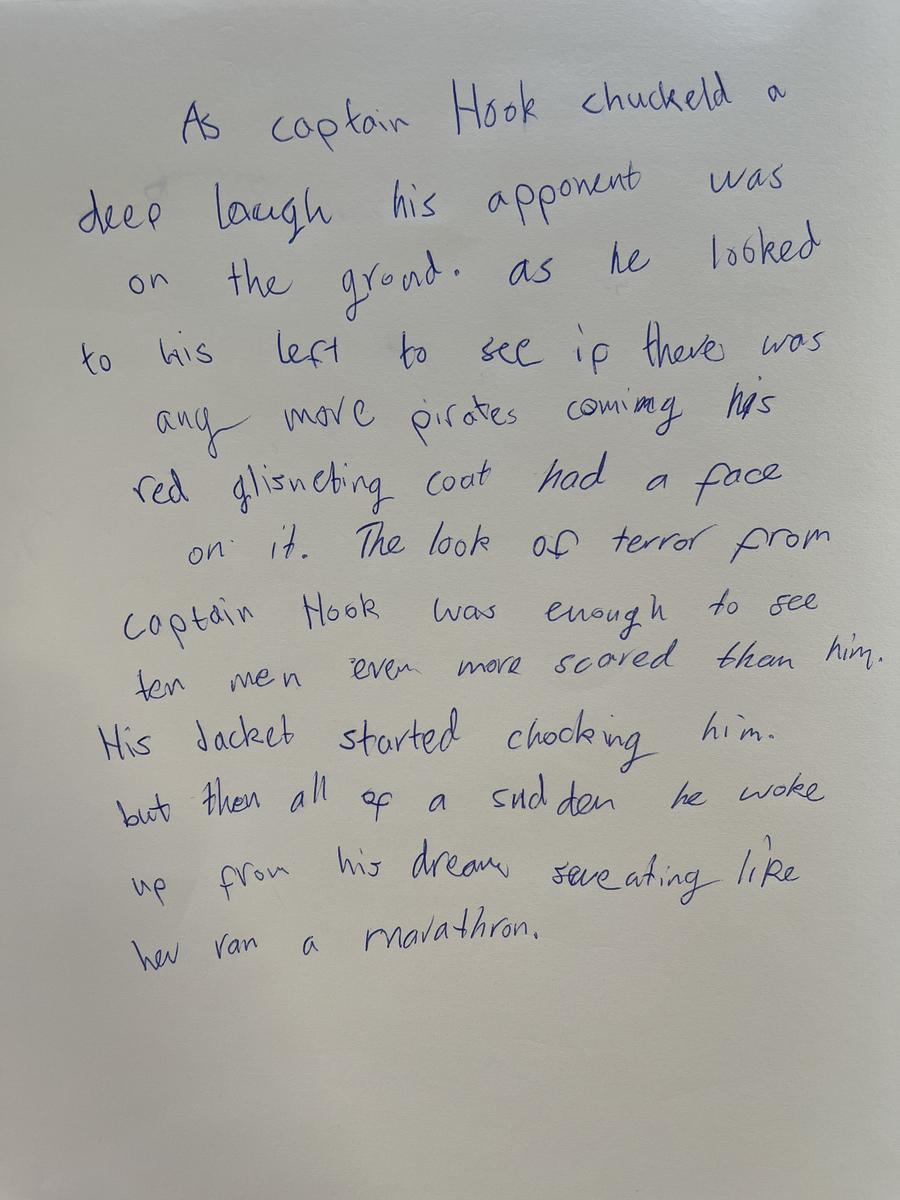 As captain Hook chuckeld a
deep laugh his apponent was
on the groud. as he looked
to his left to see if there was
any more pirates coming his
red glisneting coat had a face
on it. The look of terror from
captain Hook was enough to see
ten men even more scared than him.
His Jacket started chocking him.
but then all of a sudden he woke
up from his dream sweating like
hev ran a marathron.